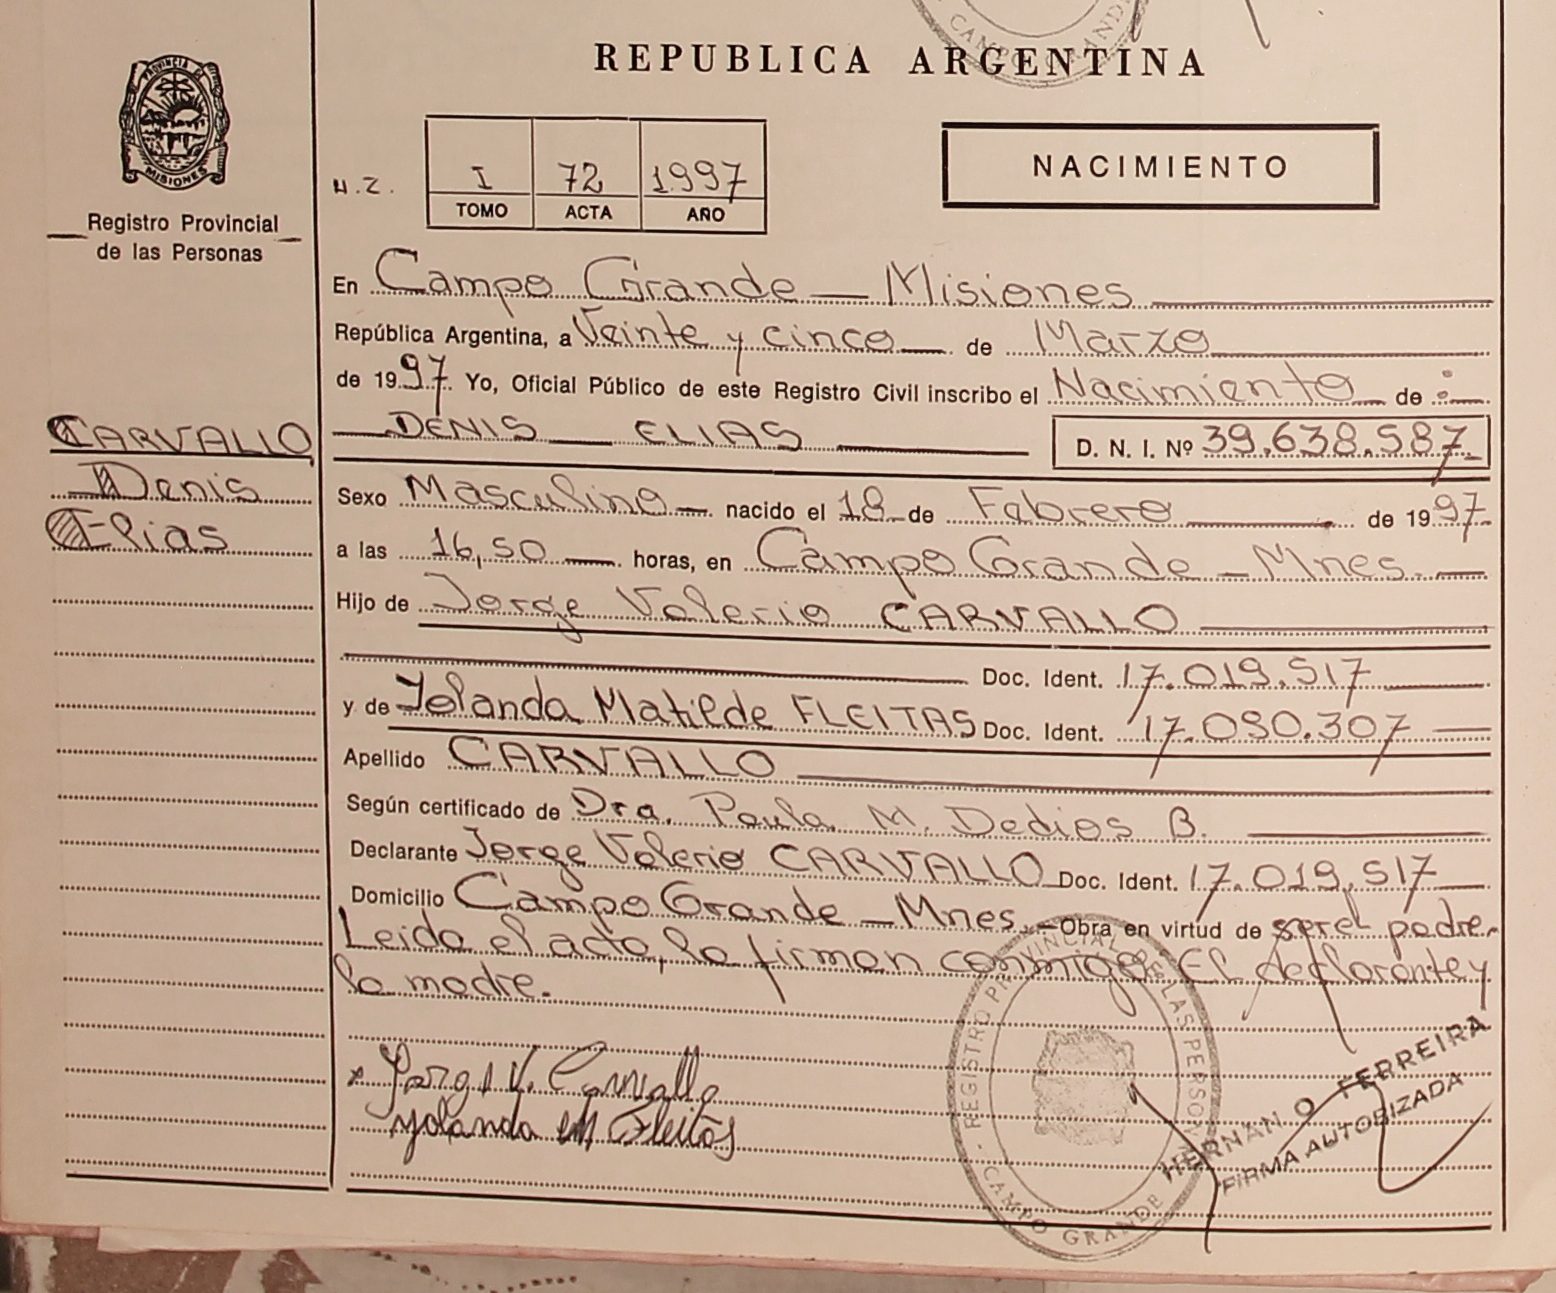 REPUBLICA ARGENTINA
PROVINCIA DE
MISIONES
Registro Provincial
de las Personas
N.Z.
I 72 1997
TOMO ACTA AÑO
NACIMIENTO
En Campo Grande — Misiones
República Argentina, a Veinte y cinco de Marzo
de 1997. Yo, Oficial Público de este Registro Civil inscribo el Nacimiento de :
CARVALLO
Denis
Elias
DENIS ELIAS
D. N. I. Nº 39.638.587
Sexo Masculino nacido el 18 de Febrero de 1997
a las 16,50 horas, en Campo Grande - Mnes.
Hijo de Jorge Valerio CARVALLO
Doc. Ident. 17.019.517
y de Yolanda Matilde FLEITAS Doc. Ident. 17.080.307
Apellido CARVALLO
Según certificado de Dra. Paula M. Dedios B.
Declarante Jorge Valerio CARVALLO Doc. Ident. 17.019.517
Domicilio Campo Grande - Mnes. Obra en virtud de ser el padre.
Leida el acta, la firman conmigo El declarante y
la madre.
x Jorge V. Carvallo
Yolanda M Fleitas
REGISTRO PROVINCIAL DE LAS PERSONAS
CAMPO GRANDE
HERNAN O FERREIRA
FIRMA AUTORIZADA